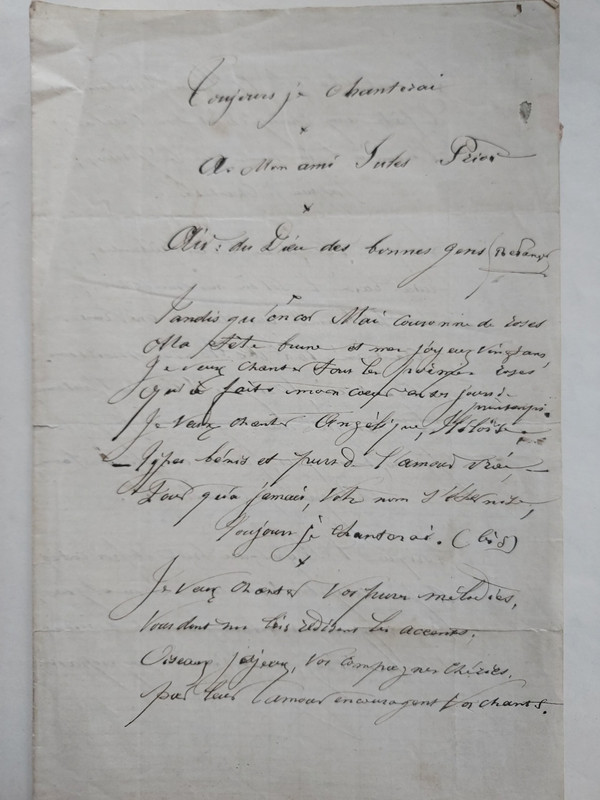 Toujours je chanterai
x
A Mon ami Jules
x
Air : du Dieu des bonnes gens (Béranger)
Tandis qu'encor Mai couronne de roses
Ma tête brune et mes joyeux vingt ans,
Je veux chanter tous les poèmes roses
Qu'a faits mon coeur à ses jours de
printemps.
Je veux chanter Angélique, Héloïse
Types bénis et purs de l'amour vrai,
Pour qu'à jamais, votre nom s'éternise,
Toujours je chanterai. (bis)
x
Je veux chanter vos pures mélodies,
Vous dont nos bois redisent les accents,
Oiseaux joyeux, vos compagnes chéries,
Par leur amour encouragent vos chants.